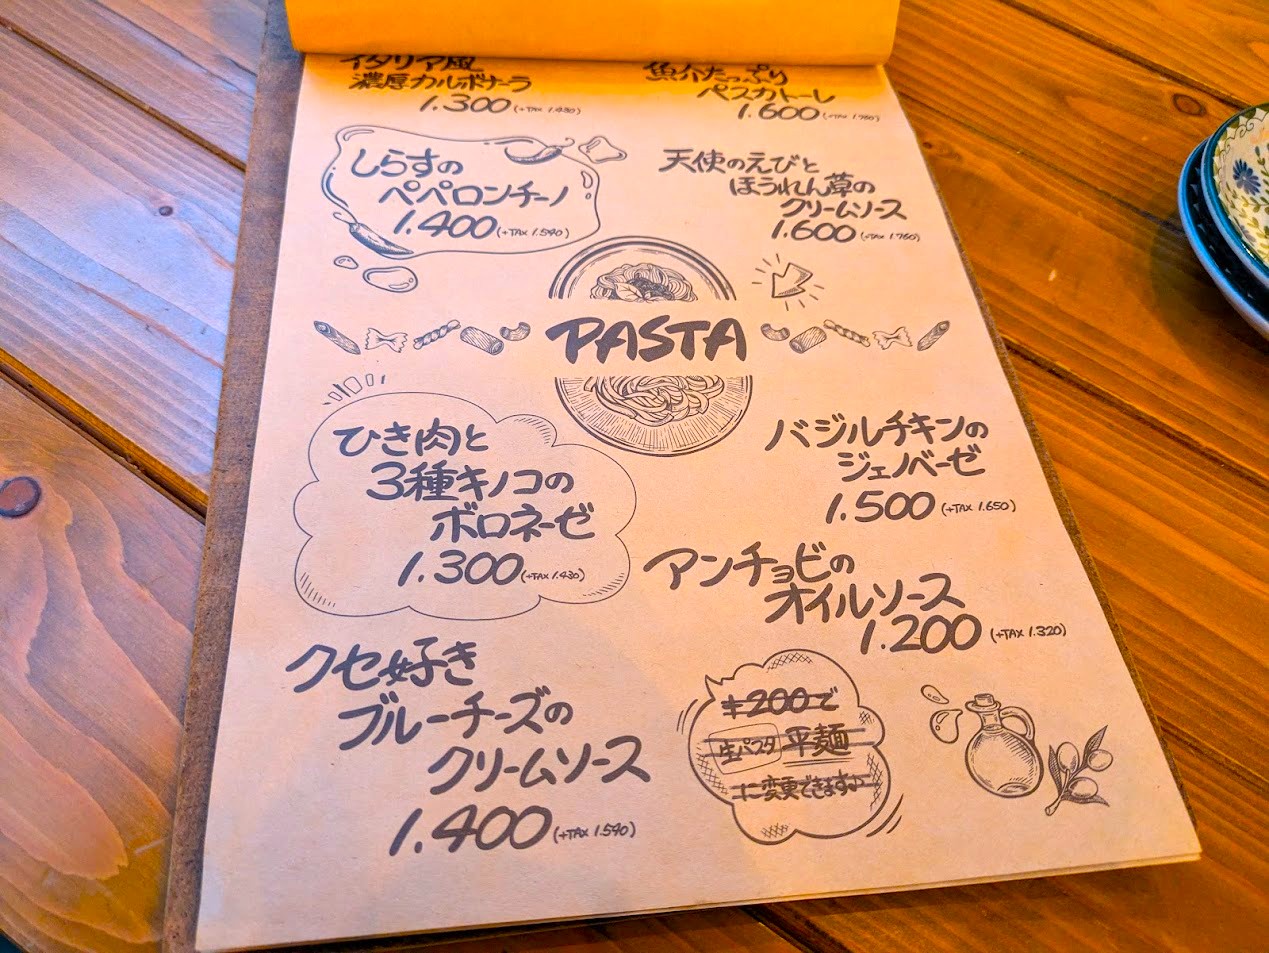 イタリア風
濃厚カルボナーラ
1.300 (+TAX 1.430)
魚介たっぷり
ペスカトーレ
1.600 (+TAX 1.760)
しらすの
ペペロンチーノ
1.400 (+TAX 1.540)
天使のえびと
ほうれん草の
クリームソース
1.600 (+TAX 1.760)
PASTA
ひき肉と
3種キノコの
ボロネーゼ
1.300 (+TAX 1.430)
バジルチキンの
ジェノベーゼ
1.500 (+TAX 1.650)
アンチョビの
オイルソース
1.200 (+TAX 1.320)
クセ好き
ブルーチーズの
クリームソース
1.400 (+TAX 1.540)
+200で
生パスタ 平麺
に変更できます♪